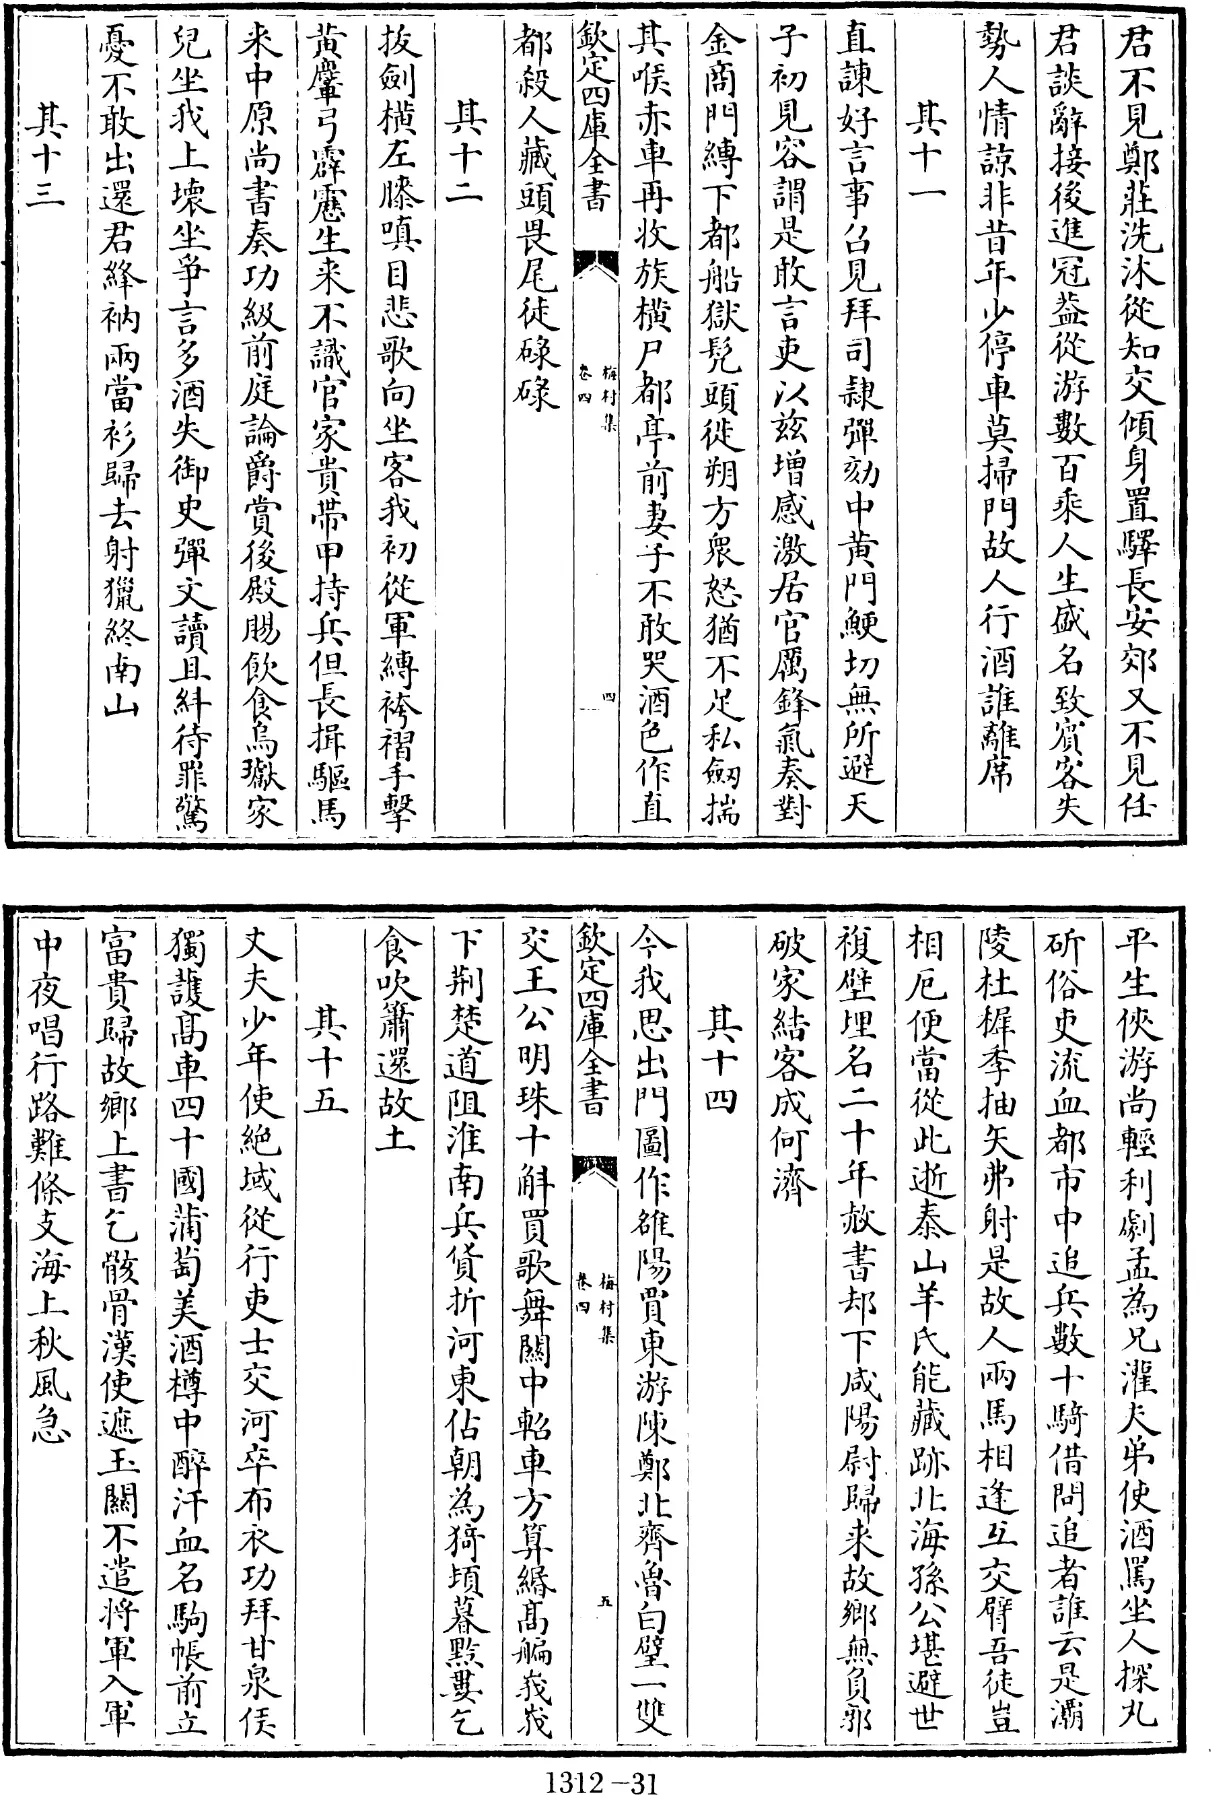 君不見鄭莊洗沐從知交傾身置驛長安郊又不見任
君談辭接後進冠蓋從游數百乘人生盛名致賓客失
勢人情諒非昔年少停車莫掃門故人行酒誰離席
其十一
直諫好言事召見拜司隸彈劾中黄門鯁切無所避天
子初見容謂是敢言吏以兹增感激居官厲鋒氣奏對
金商門縛下都船獄髠頭徙朔方衆怒猶不足私劔揣
其喉赤車再收族橫尸都亭前妻子不敢哭酒色作直
欽定四庫全書
梅村集
卷四
四
都殺人藏頭畏尾徒碌碌
其十二
拔劍橫左膝嗔目悲歌向坐客我初從軍縛袴褶手擊
黃麞弓霹靂生來不識官家貴帶甲持兵但長揖驅馬
来中原尚書奏功級前庭論爵賞後殿賜飲食烏瓛家
兒坐我上壞坐爭言多酒失御史彈文讀且糾待罪驚
憂不敢出還君絳衲兩當衫歸去射獵終南山
其十三
平生俠游尚輕利劇孟為兄灌夫弟使酒罵坐人探丸
斫俗吏流血都市中追兵數十騎借問追者誰云是灞
陵杜穉季抽矢弗射是故人兩馬相逢互交臂吾徒豈
相厄便當從此逝泰山羊氏能藏跡北海孫公堪避世
複壁埋名二十年赦書却下咸陽尉歸来故鄉無負郭
破家結客成何濟
其十四
今我思出門圖作雒陽賈東游陳鄭北齊魯白璧一雙
欽定四庫全書
梅村集
卷四
五
交王公明珠十斛買歌舞關中軺車方算緡高艑峩峩
下荆楚道阻淮南兵貨折河東估朝為猗頓暮黔婁乞
食吹簫還故土
其十五
丈夫少年使絶域從行吏士交河卒布衣功拜甘泉侯
獨護高車四十國蒲萄美酒樽中醉汗血名駒帳前立
富貴歸故鄉上書乞骸骨漢使遮玉關不遣將軍入軍
中夜唱行路難條支海上秋風急
1312-31